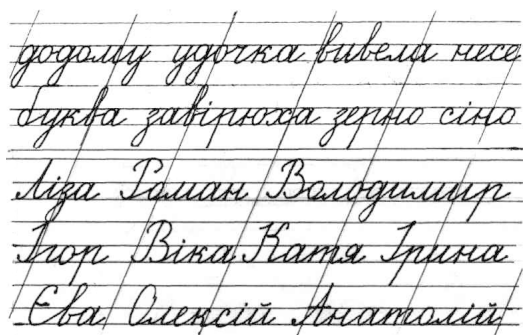 додому удочка вивела несе
буква завірюха зерно сіно
Ліза Роман Володимир
Ігор Віка Катя Ірина
Єва Олексій Анатолій